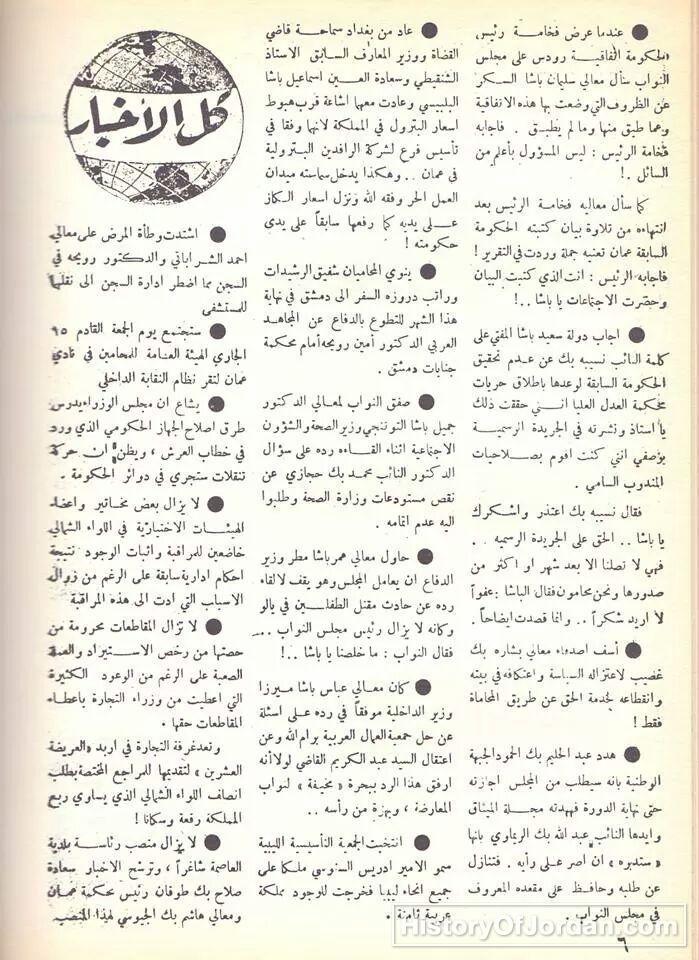 ● عندما عرض فخامة رئيس
الحكومة اتفاقية رودس على مجلس
النواب سأل معالي سليمان باشا السكر
عن الظروف التي وضعت بها هذه الاتفاقية
وعما طبق منها وما لم يطبق . فاجابه
فخامة الرئيس : ليس المسؤول بأعلم من
السائل . !
كما سأل معاليه فخامة الرئيس بعد
انتهاءه من تلاوة بيان كتبته الحكومة
السابقة عمان تعنيه جملة وردت في التقرير !
فاجابه الرئيس : انت الذي كتبت البيان
وحضرت الاجتماعات يا باشا . . !
● اجاب دولة سعيد باشا المفتي على
كلمة النائب نسيبه بك عن عدم تحقيق
الحكومة السابقة لوعدها باطلاق حريات
محكمة العدل العليا انني حققت ذلك
يا استاذ ونشرته في الجريدة الرسمية
بوصفي انني كنت اقوم بصلاحيات
المندوب السامي .
فقال نسيبه بك اعتذر واشكرك
يا باشا . . الحق على الجريدة الرسميه . .
فهي لا تصلنا الا بعد شهر او اكثر من
صدورها ونحن محامون فقال الباشا : عفواً
لا اريد شكراً . . وانما قصدت ايضاحاً .
● أسف اصدقاء معالي بشاره بك
غصيب لاعتزاله السياسة واعتكافه في بيته
وانقطاعه لخدمة الحق عن طريق المحاماة
فقط !
● هدد عبد الحليم بك الحمود الجبهة
الوطنية بانه سيطلب من المجلس اجازته
حتى نهاية الدورة فهددته مجلة الميثاق
وايدها النائب عبد الله بك الريماوي بانها
« ستدبره » ان اصر على رأيه . فتنازل
عن طلبه وحافظ على مقعده المعروف
في مجلس النواب .
● عاد من بغداد سماحة قاضي
القضاة ووزير المعارف السابق الاستاذ
الشنقيطي وسعادة العين اسماعيل باشا
البلبيسي وعادت معهما اشاعة قرب هبوط
اسعار البترول في المملكة لانهما وفقا في
تأسيس فرع لشركة الرافدين البترولية
في عمان . . وهكذا يدخل سماسته ميدان
العمل الحر وفقه الله ونزل اسعار الكاز
على يديه كما رفعها سابقاً على يدى
حكومته !
● ينوي المحاميان شفيق الرشيدات
وراتب دروزه السفر الى دمشق في نهاية
هذا الشهر للتطوع بالدفاع عن المجاهد
العربي الدكتور أمين رويحه أمام محكمة
جنايات دمشق .
● صفق النواب لمعالي الدكتور
جميل باشا التوتنجي وزير الصحة والشؤون
الاجتماعية اثناء القاءه رده على سؤال
الدكتور النائب محمد بك حجازي عن
نقص مستودعات وزارة الصحة وطلبوا
اليه عدم اتمامه .
● حاول معالي عمر باشا مطر وزير
الدفاع ان يعامل المجلس وهو يقف لالقاء
رده عن حادث مقتل الطفلين في يالو
وكانه لا يزال رئيس مجلس النواب . . .
فقال النواب : ما خلصنا يا باشا . . !
● كان معالي عباس باشا ميرزا
وزير الداخلية موفقاً في رده على اسئلة
عن حل جمعية العمال العربية برام الله وعن
اعتقال السيد عبد الكريم القاضي لولا أنه
ارفق هذا الرد ببحرة « مخيفة » لنواب
المعارضة ، وبهزة من رأسه . .
● انتخبت الجمعية التأسيسية الليبية
سمو الامير ادريس السنوسي ملكا على
جميع انحاء ليبيا فخرجت للوجود مملكة
عربية ثامنة .
كل الأخبار
● اشتدت وطأة المرض على معالي
احمد الشراباتي والدكتور رويحه في
السجن مما اضطر ادارة السجن الى نقلهما
للمستشفى
● ستجتمع يوم الجمعة القادم ١٥
الجاري الهيئة العامة للمحامين في نادي
عمان لتقر نظام النقابة الداخلي
● يشاع ان مجلس الوزراء يدرس
طرق اصلاح الجهاز الحكومي الذي ورد
في خطاب العرش ، ويظن ان حركة
تنقلات ستجري في دوائر الحكومة .
● لا يزال بعض مخاتير واعضاء
الهيئات الاختيارية في اللواء الشمالي
خاضعين للمراقبة واثبات الوجود نتيجة
احكام ادارية سابقة على الرغم من زوال
الاسباب التي ادت الى هذه المراقبة
● لا تزال المقاطعات محرومة من
حصتها من رخص الاستيراد والعملة
الصعبة على الرغم من الوعود الكثيرة
التي اعطيت من وزراء التجارة باعطاء
المقاطعات حقها .
وتعد غرفة التجارة في اربد « العريضة
العشرين » لتقديمها للمراجع المختصة بطلب
انصاف اللواء الشمالي الذي يساوي ربع
المملكة رقعة وسكانا !
● لا يزال منصب رئاسة بلدية
العاصمة شاغراً ، وترشح الاخبار سعادة
صلاح بك طوقان رئيس محكمة عمان
ومعالي هاشم بك الجيوسي لهذا المنصب
٦
HistoryOfJordan.com